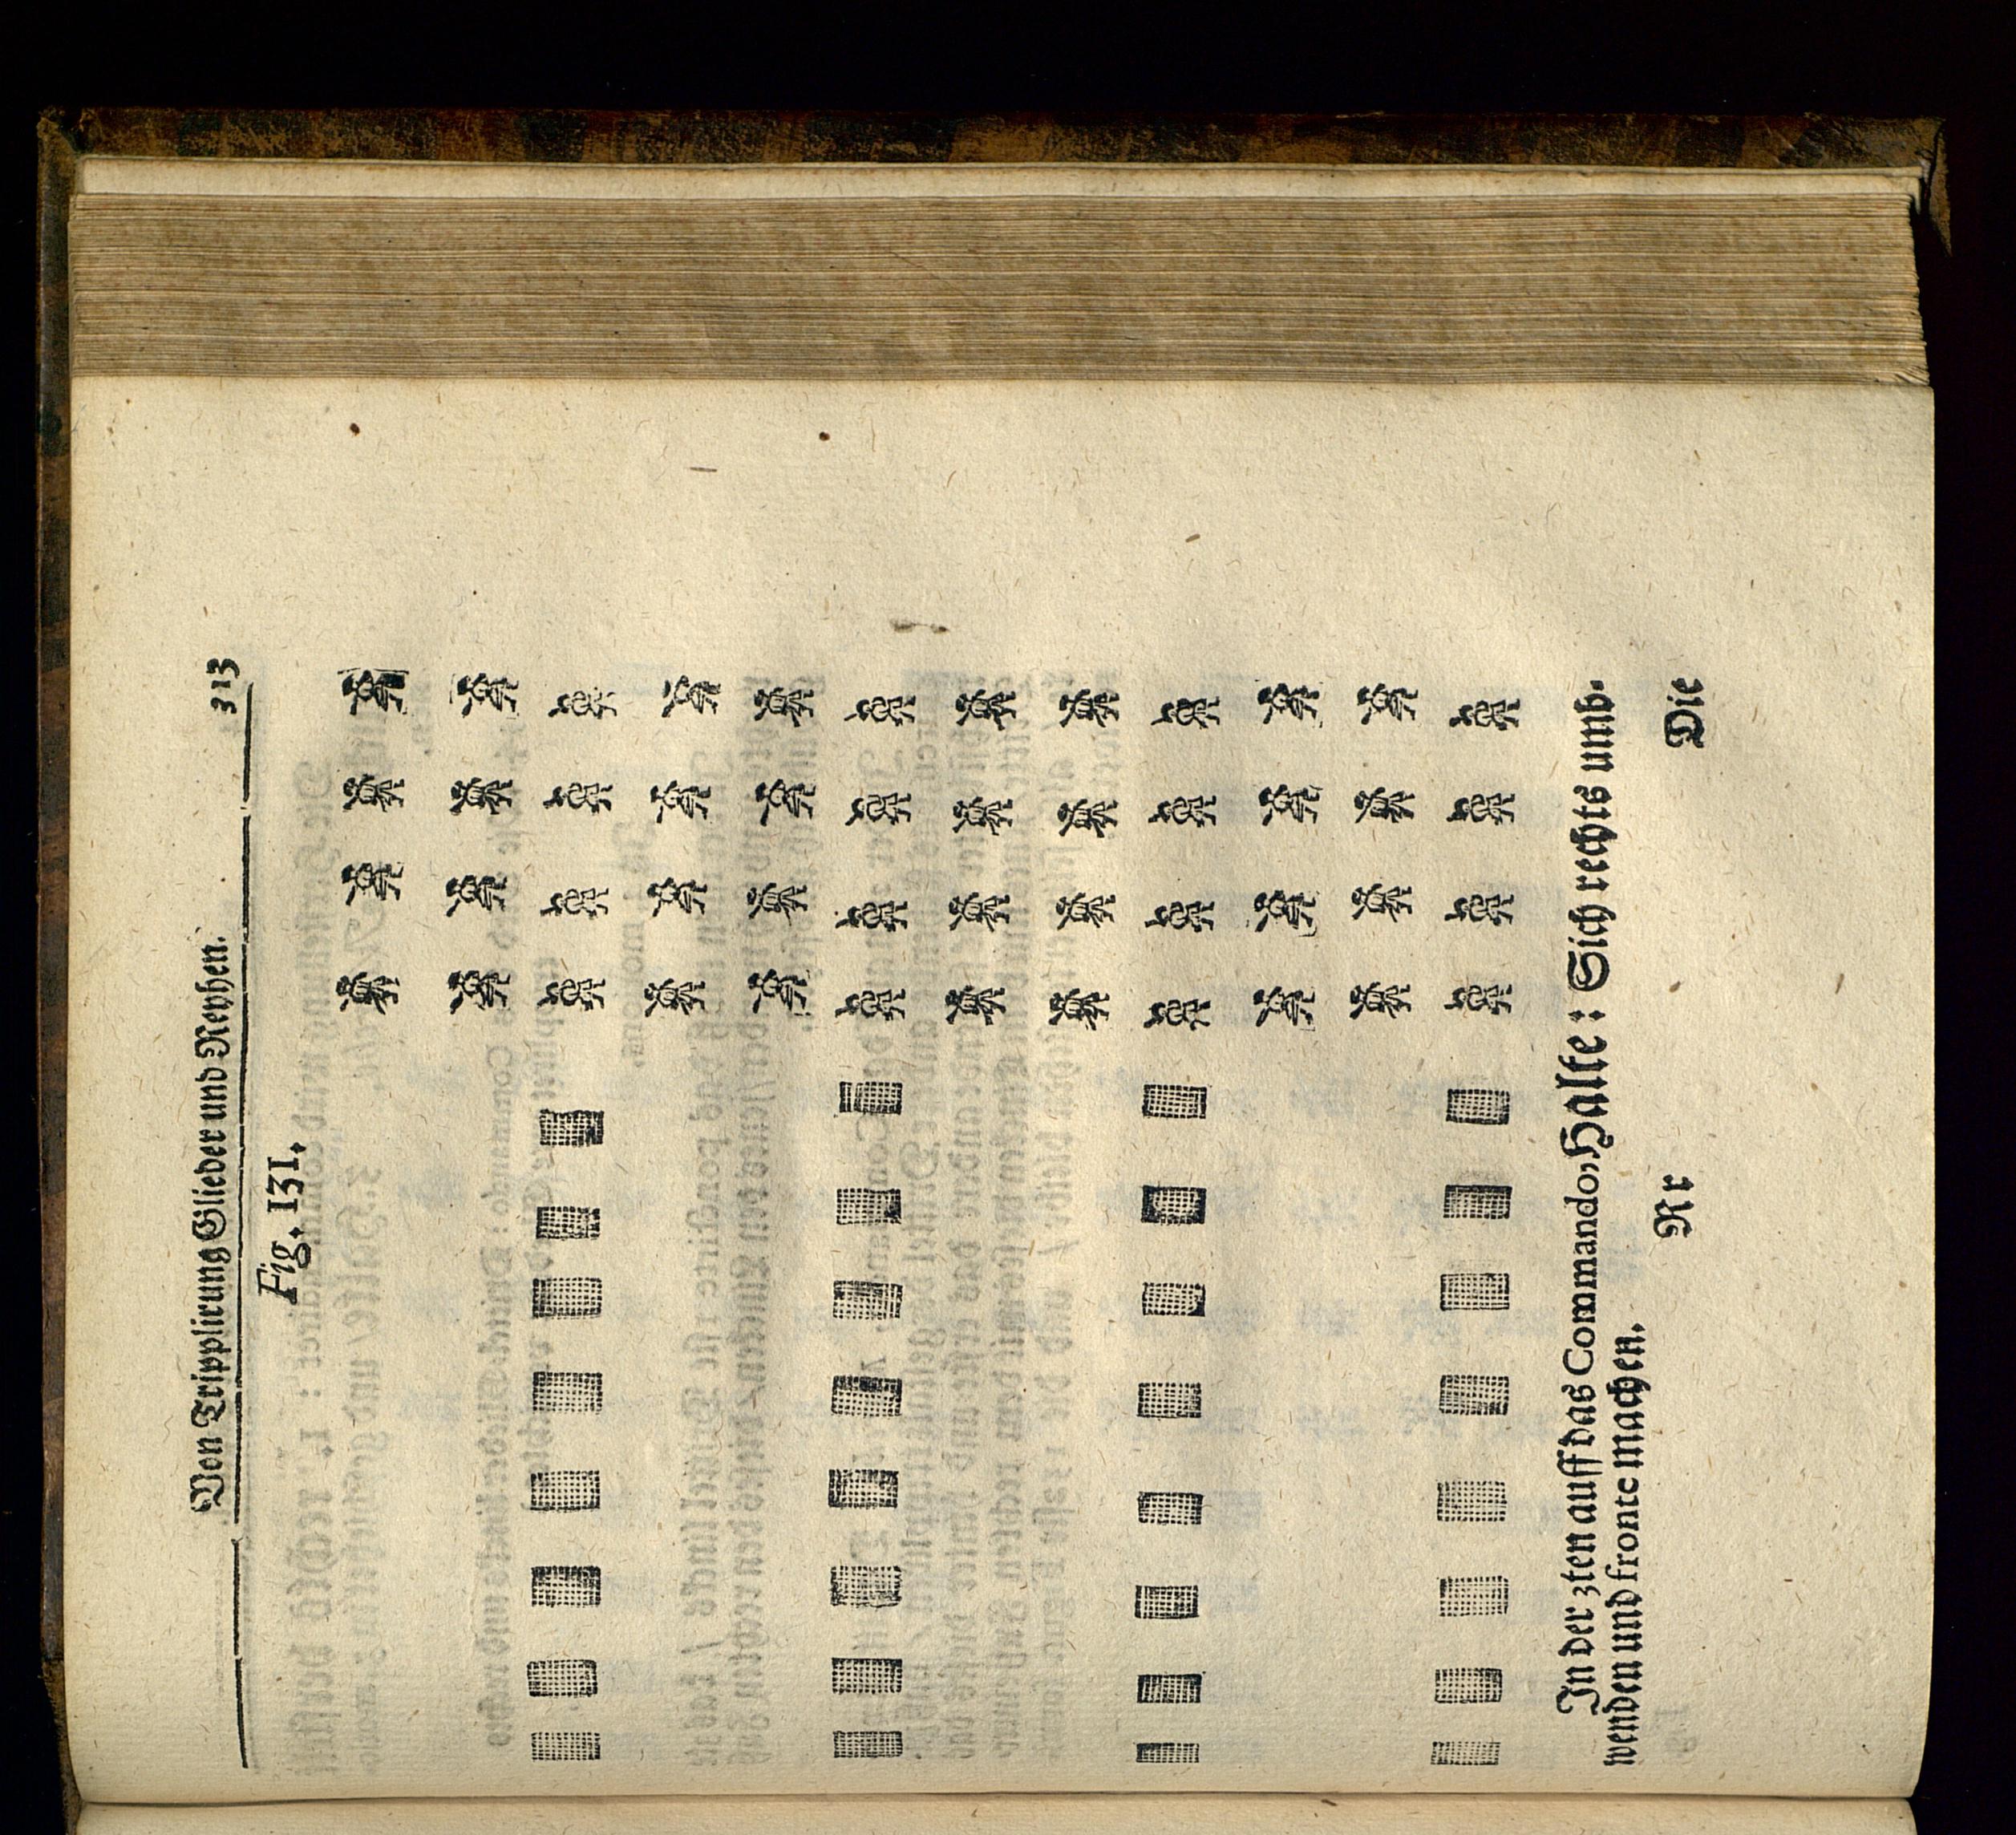 Von Tripplirung Glieder und Reyhen. 313
Fig. 131.
In der 3ten auff das Commando, Halte: Sich rechts umb-
wenden und fronte machen.
Rr Die